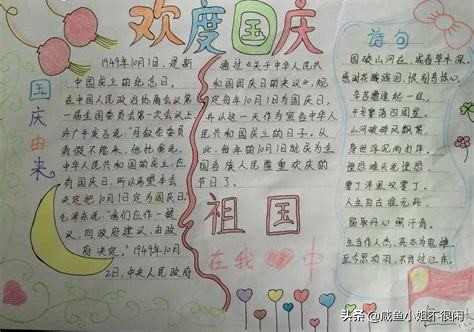 欢度国庆
国庆由来
1949年10月1日,是新
中国成立的纪念日。
在中国人民政治协商会议第
一届全国委员会第一次会议上,
许广平发言说:“马叙伦委员
请假不能来,他托我说,
中华人民共和国的成立,应
有国庆日,所以希望本会
决定把10月1日定为国庆日。”
毛泽东说:“我们应作一提
议,向政府建议,由政
府决定。”1949年10月
2日,中央人民政府
通过《关于中华人民共
和国国庆日的决议》,规
定每年10月1日为国庆日,
并以这一天作为宣告中华人
民共和国成立的日子。从
此,每年的10月1日就成为全
国各族人民隆重欢庆的
节日了。
祖国
在我中
诗句
国破山河在,城春草木深。
感时花溅泪,恨别鸟惊心。
辛苦遭逢起一经,
干戈寥落四周星。
山河破碎风飘絮,
身世浮沉雨打萍。
惶恐滩头说惶恐,
零丁洋里叹零丁。
人生自古谁无死,
留取丹心照汗青。
生当作人杰,死亦为鬼雄。
至今思项羽,不肯过江东。
头条 @咸鱼小姐不很闲